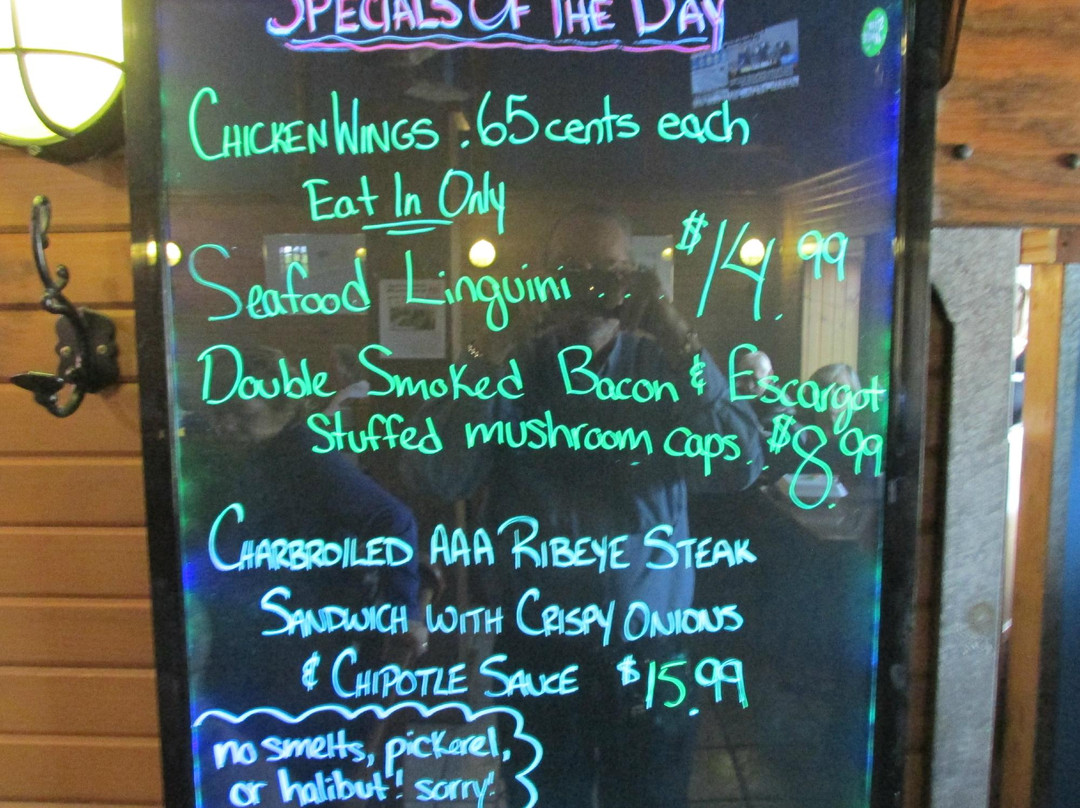 SPECIALS OF THE DAY
CHICKEN WINGS .65 cents each
Eat In Only
Seafood Linguini .... $14.99
Double Smoked Bacon & Escargot
Stuffed mushroom caps .. $8.99
CHARBROILED AAA RIBEYE STEAK
SANDWICH WITH CRISPY ONIONS
& CHIPOTLE SAUCE $15.99
no smelts, pickerel,
or halibut! sorry!